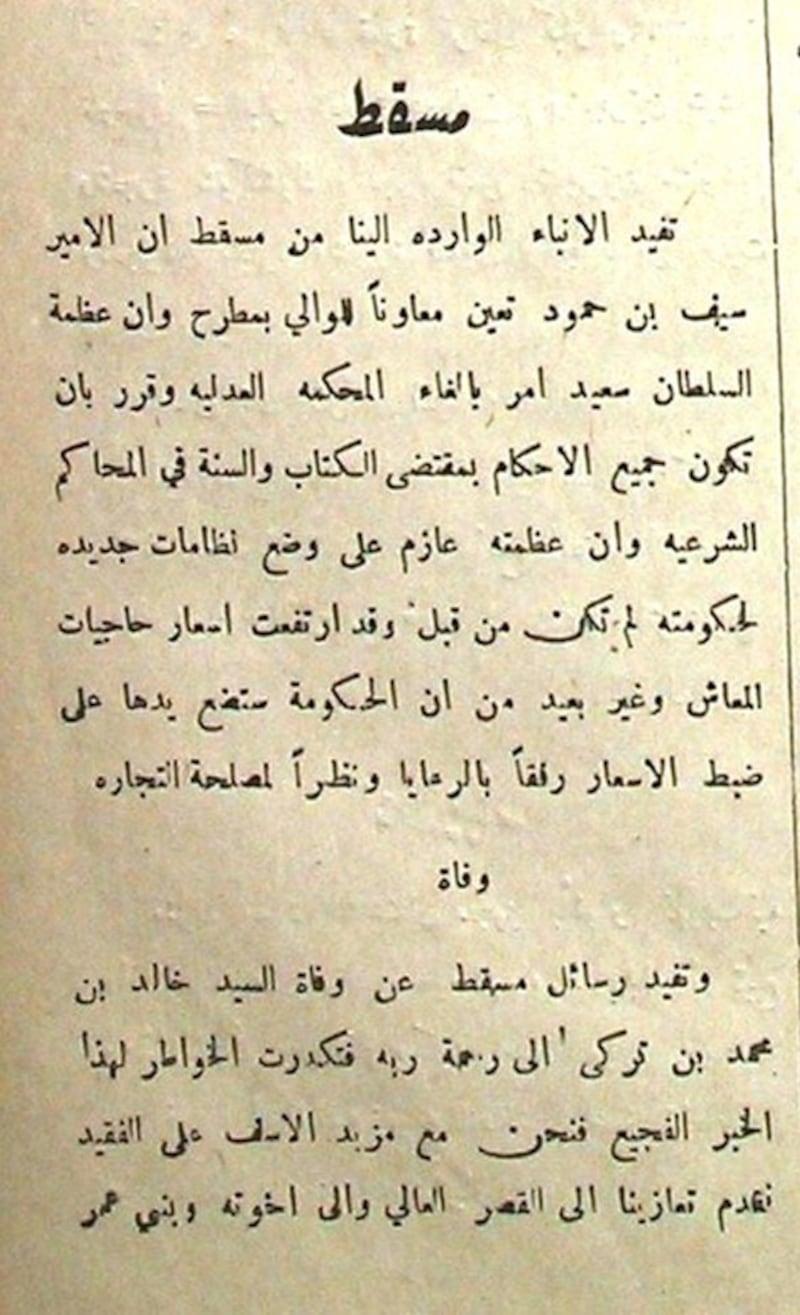 مسقط
تفيد الانباء الوارده الينا من مسقط ان الامير
سيف بن حمود تعين معاوناً للوالي بمطرح وان عظمة
السلطان سعيد امر بالغاء المحكمه العدليه وقرر بان
تكون جميع الاحكام بمقتضى الكتاب والسنة في المحاكم
الشرعيه وان عظمته عازم على وضع نظامات جديده
لحكومته لم تكن من قبل وقد ارتفعت اسعار حاجيات
المعاش وغير بعيد من ان الحكومة ستضع يدها على
ضبط الاسعار رفقاً بالرعايا ونظراً لمصلحة التجاره
وفاة
وتفيد رسائل مسقط عن وفاة السيد خالد بن
محمد بن تركى الى رحمة ربه فتكدرت الخواطر لهذا
الخبر الفجيع فنحن مع مزيد الاسف على الفقيد
نقدم تعازينا الى القصر العالي والى اخوته وبني عمر